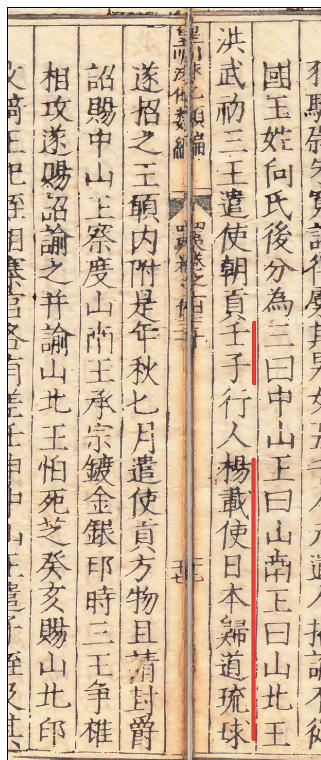 國王姓向氏後分為三曰中山王曰山南王曰山北王
洪武初三王遣使朝貢壬子行人楊載使日本歸道琉球
遂招之王願内附是年秋七月遣使貢方物且請封爵
詔賜中山王察度山南王承宗鍍金銀印時三王爭雄
相攻遂賜詔諭之并諭山北王怕死芝癸亥賜山北印